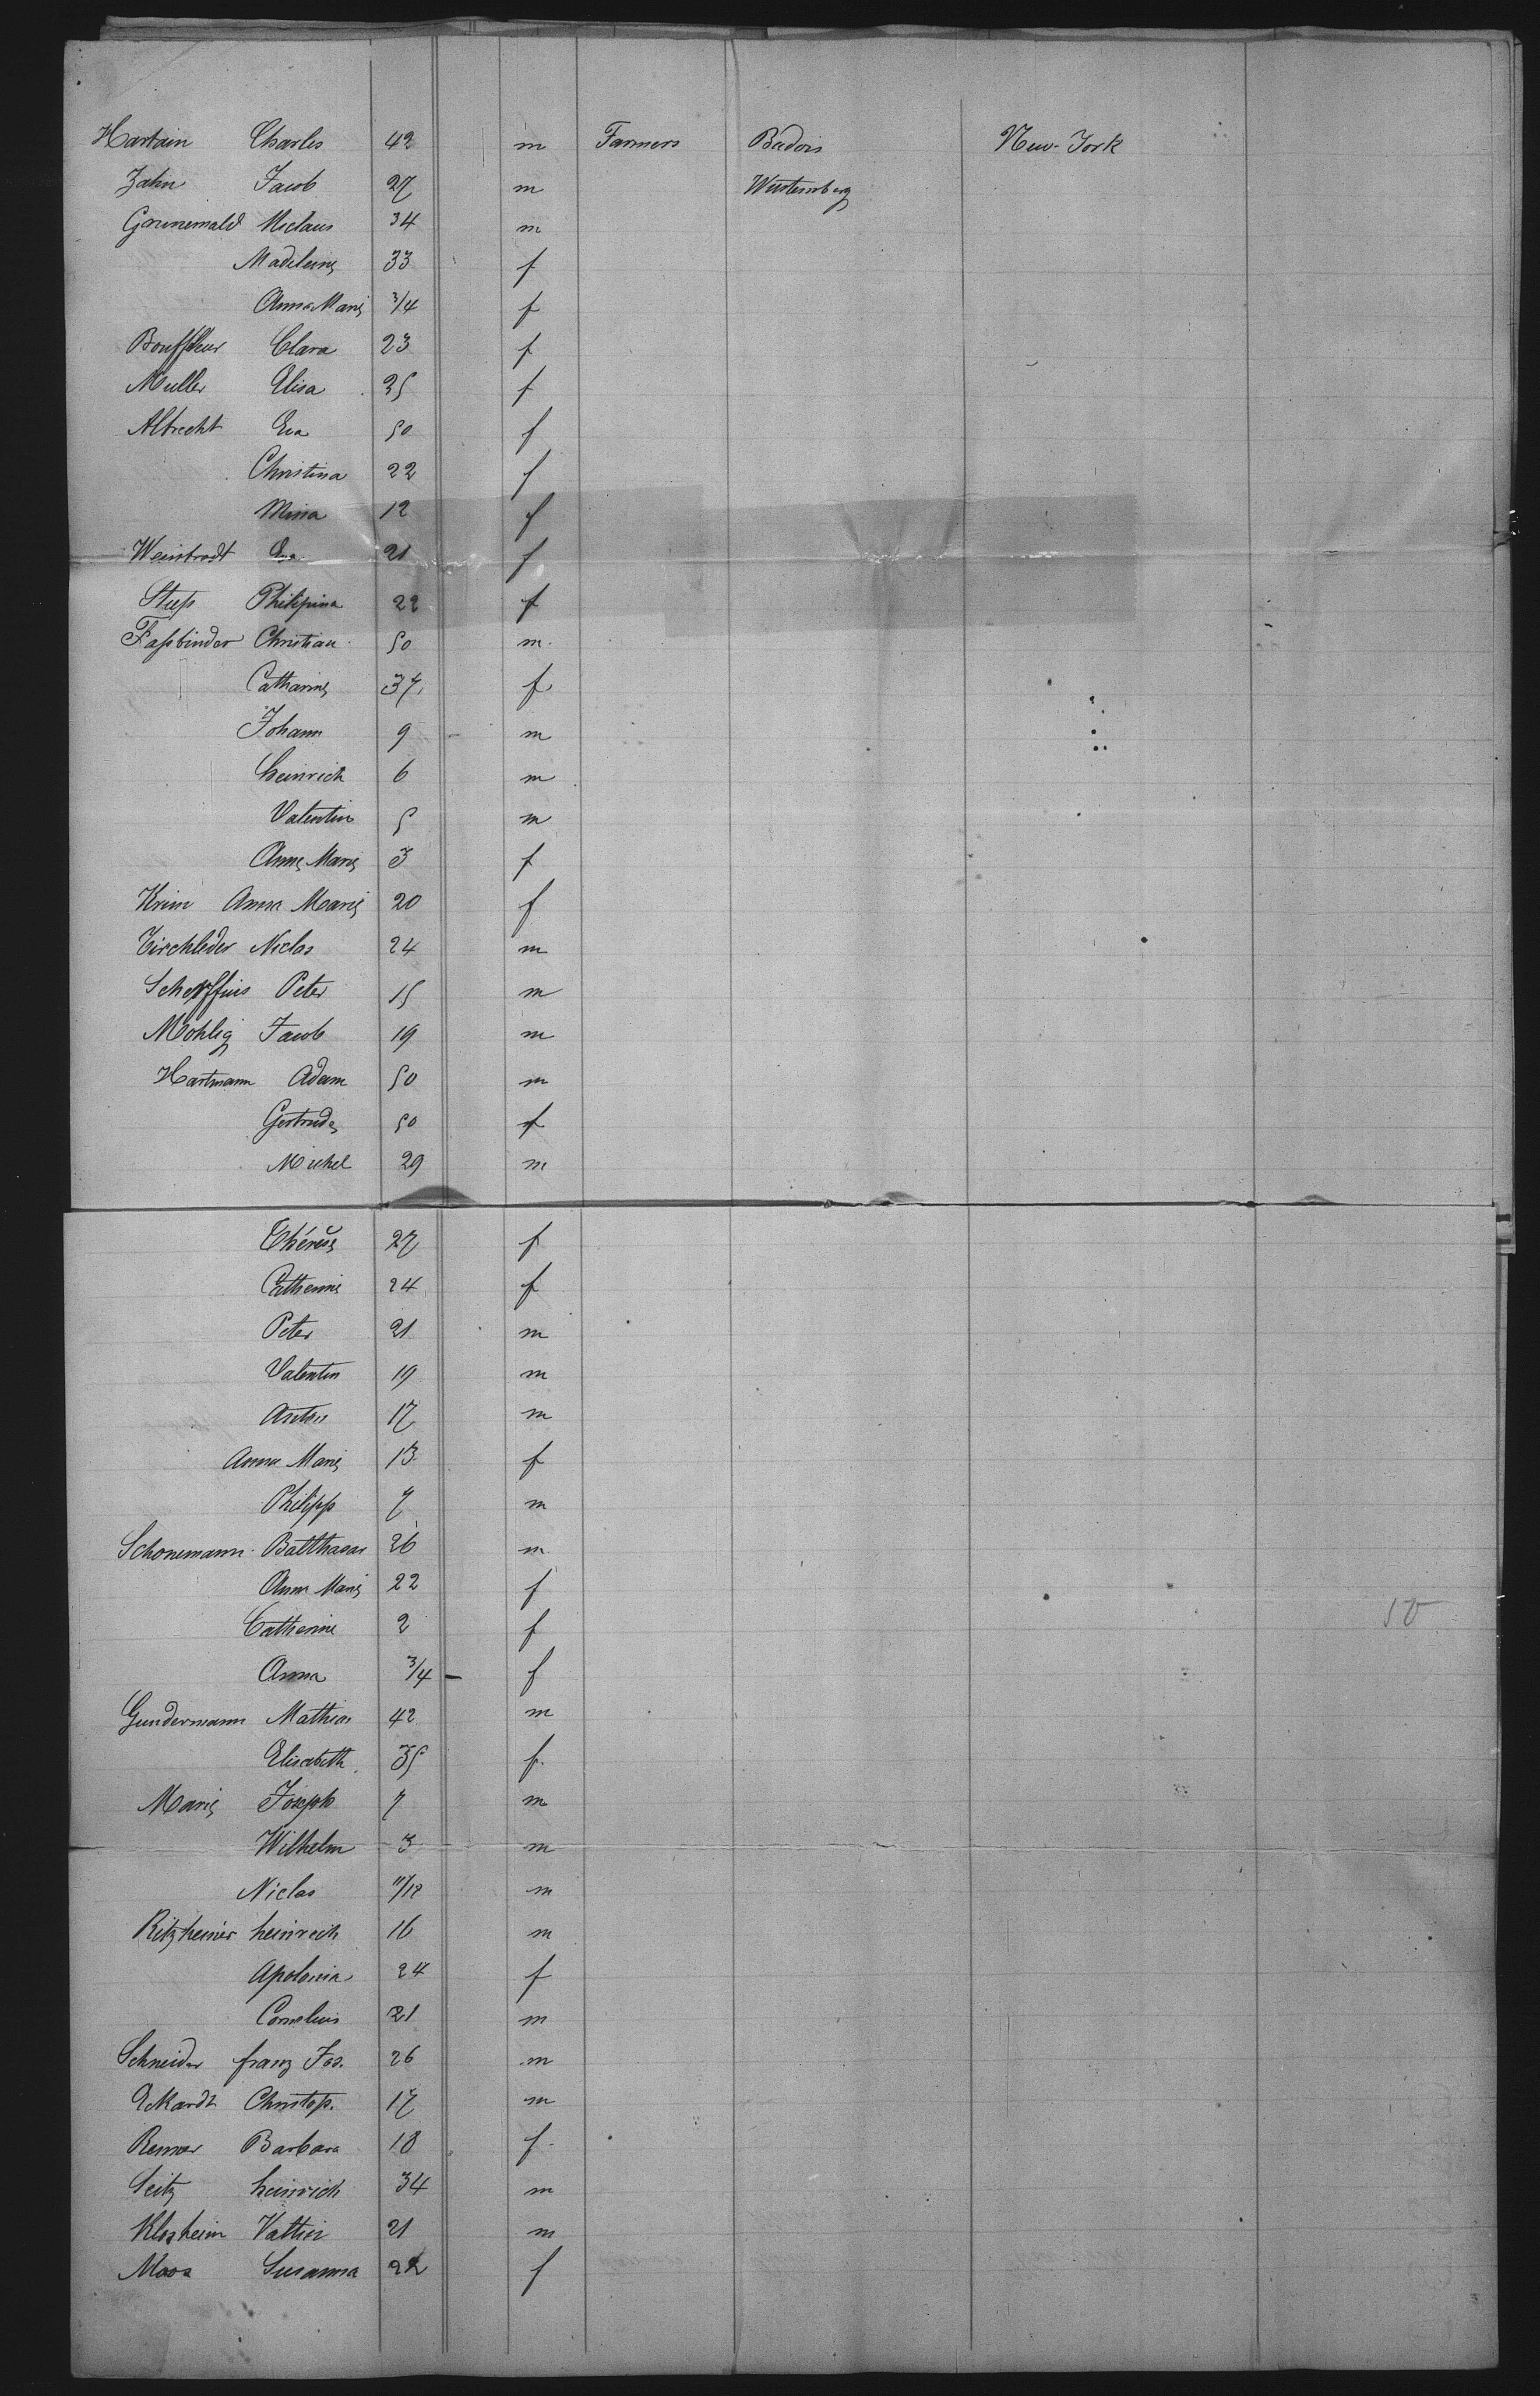 Hartain Charles 42 m Farmers Badois New-York
Zahn Jacob 27 m Wurtemberg
Grunemald Niclaus 34 m
Madeleine 33 f
Anna Marie 3/4 f
Bouffleur Clara 23 f
Muller Elisa 25 f
Albrecht Eva 50 f
Christina 22 f
Mina 12 f
Weinbrodt Eva 21 f
Steß Philipina 22 f
Faßbinder Christian 50 m
Catharine 37 f
Johann 9 m
heinrich 6 m
Valentin 5 m
Anne Marie 3 f
Krim Anna Marie 20 f
Tirchleder Niclas 24 m
Scheffius Peter 15 m
Mohlig Jacob 19 m
Hartmann Adam 50 m
Gertrude 50 f
Michel 29 m
Thérese 27 f
Catherine 24 f
Peter 21 m
Valentin 19 m
Anton 17 m
Anna Marie 13 f
Philipp 7 m
Schonemann Balthasar 26 m
Anna Marie 22 f
Catherine 2 f 50
Anna 3/4 f
Gundermann Mathias 42 m
Elisabeth 35 f
Marie Joseph 7 m
Wilhelm 3 m
Niclas 11/12 m
Ritzheiner heinrich 16 m
Apolonia 24 f
Cornelius 21 m
Schneider franz Jos. 26 m
Eckardt Christop. 17 m
Renner Barbara 18 f
Seitz heinrich 34 m
Klosheim Valtin 21 m
Moos Susanna 22 f